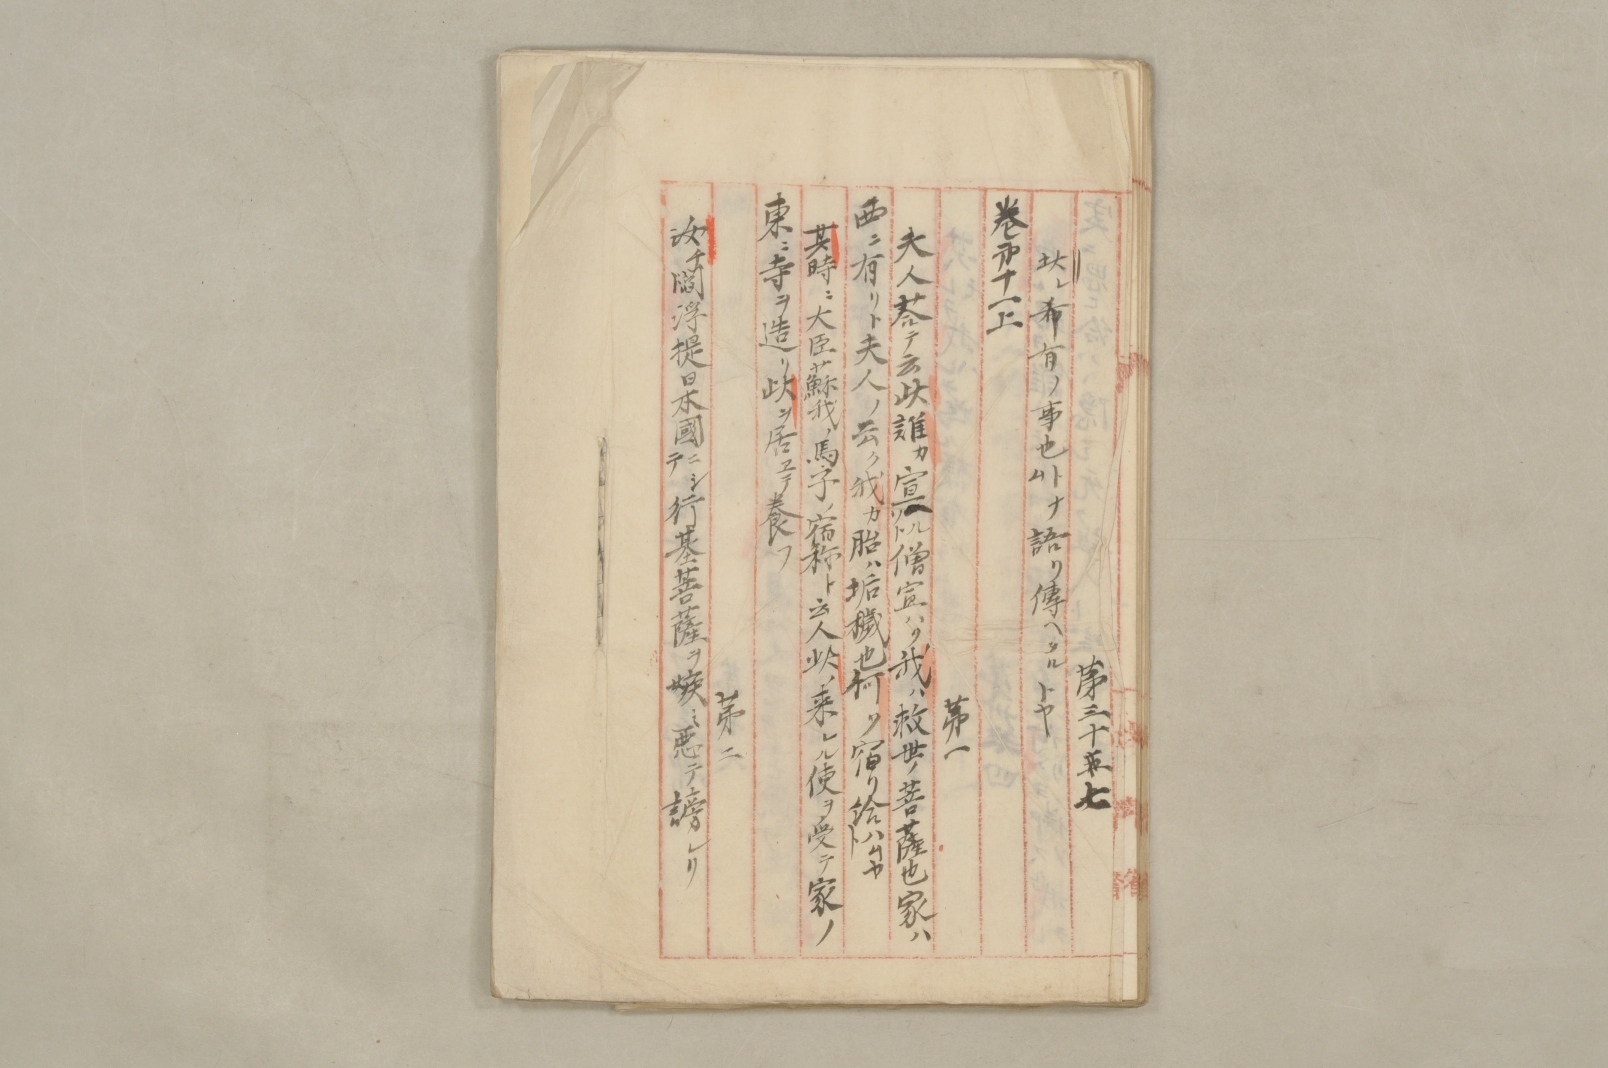 第三十五七
此レ希有ノ事也トナム語リ傳ヘタルトヤ
巻第十一上
第一
夫人荅テ云此誰カ宣ルソト僧宣ハク我ハ救世ノ菩薩也家ハ
西ニ有リト夫人ノ云ク我カ胎ハ垢穢也何ソ宿リ給ハムヤト
其時ニ大臣蘇我ノ馬子ノ宿祢ト云人此ノ来レル使ヲ受テ家ノ
東ニ寺ヲ造リ此ヲ居ヱテ養フ
第二
汝チ閻浮提日本國ニシテ行基菩薩ヲ嫉ミ悪テ謗レリ